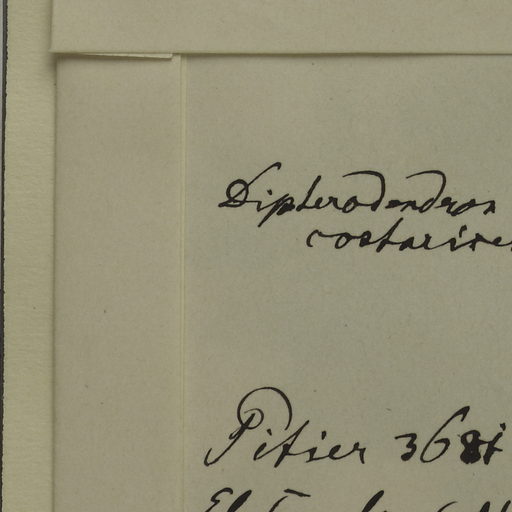 Dipterodendron
costarice
Pitier 3681